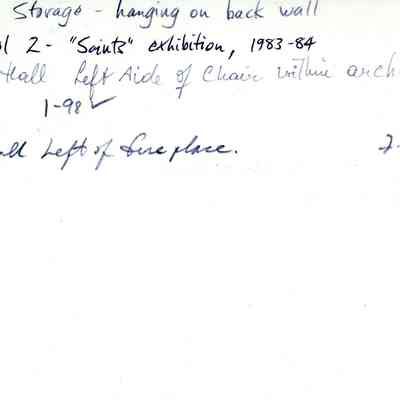 Storage - hanging on back wall
l 2 - "Saints" exhibition, 1983-84
Hall Left Aide of Chair within arch
1-98 ✓
all Left of fireplace. 7-